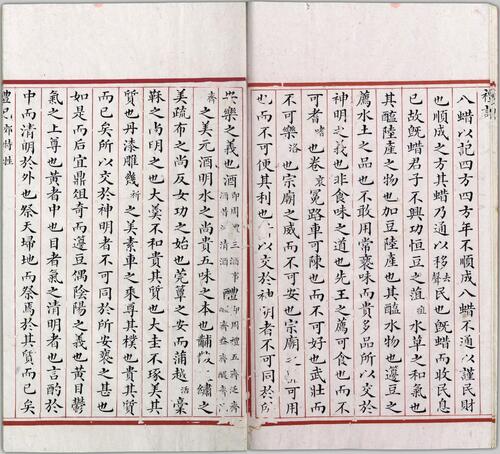 禮記
八蜡以記四方四方年不順成八蜡不通以謹民財
也順成之方其蜡乃通以移去聲民也旣蜡而收民息
已故旣蜡君子不興功恒豆之菹草之和氣也
其醢陸產之物也加豆陸產也其醢水物也籩豆之
薦水土之品也不敢用常褻味而貴多品所以交於
神明之義也非食味之道也先王之薦可食也而不
可耆嗜也卷袞冕路車可陳也而不可好也武壯而
不可樂洛也宗廟之威而不可安也宗廟之可用
也而不可便其利也以交於神明者不可同於所
樂之義也酒即周禮三酒事酒昔酒清酒醴即周禮五齊泛齊醴齊盎齊醍齊
齊之美元酒明水之尚貴五味之本也黼黻繡之
美疏布之尚反女功之始也莞簟之安而蒲越活藁
秣之尚明之也大羹不和貴其質也大圭不琢美其
質也丹漆雕幾祈之美素車之乘尊其樸也貴其質
而已矣所以交於神明者不可同於所安褻之甚也
如是而后宜鼎俎奇而籩豆偶陰陽之義也黃目鬱
氣之上尊也黃者中也目者氣之清明者也言酌於
中而清明於外也祭天埽地而祭焉於其質而已矣
禮記 郊特牲